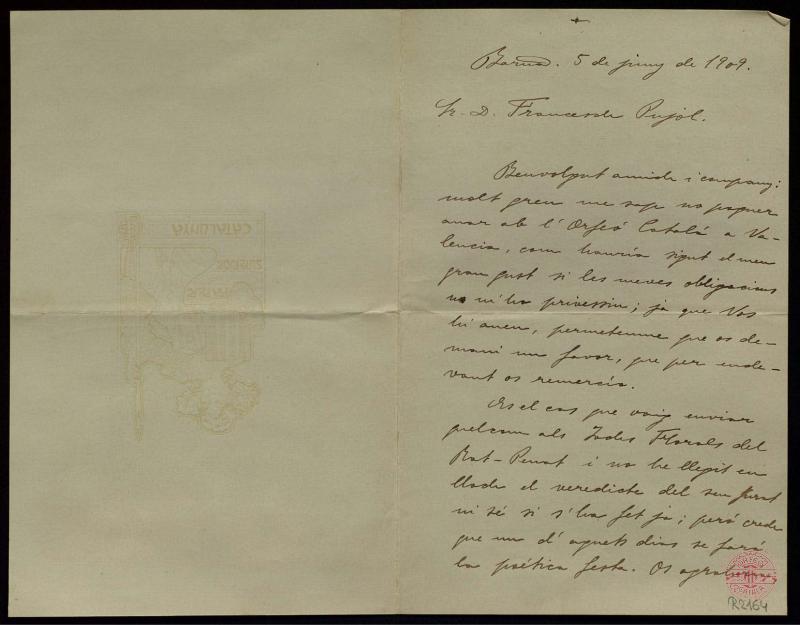 Barna. 5 de juny de 1909.
Sr. D. Francesch Pujol.
Benvolgut amich i company:
molt greu me sap no poguer
anar ab l'Orfeó Catalá a Va-
lencia, com hauría sigut el meu
gran gust si les meves obligacions
no m'ho privessin; ja que Vos
hi aneu, permeteume que os de-
mani un favor, que per ende-
vant os remercío.
Es el cas que vaig enviar
quelcom als Jochs Florals del
Rat-Penat i no he llegit en
lloch el veredicte del seu Jurat
ni sé si s'ha fet ja; peró crech
que un d'aquets dias se fará
la poética festa. Os
R2164
CATALUNYA